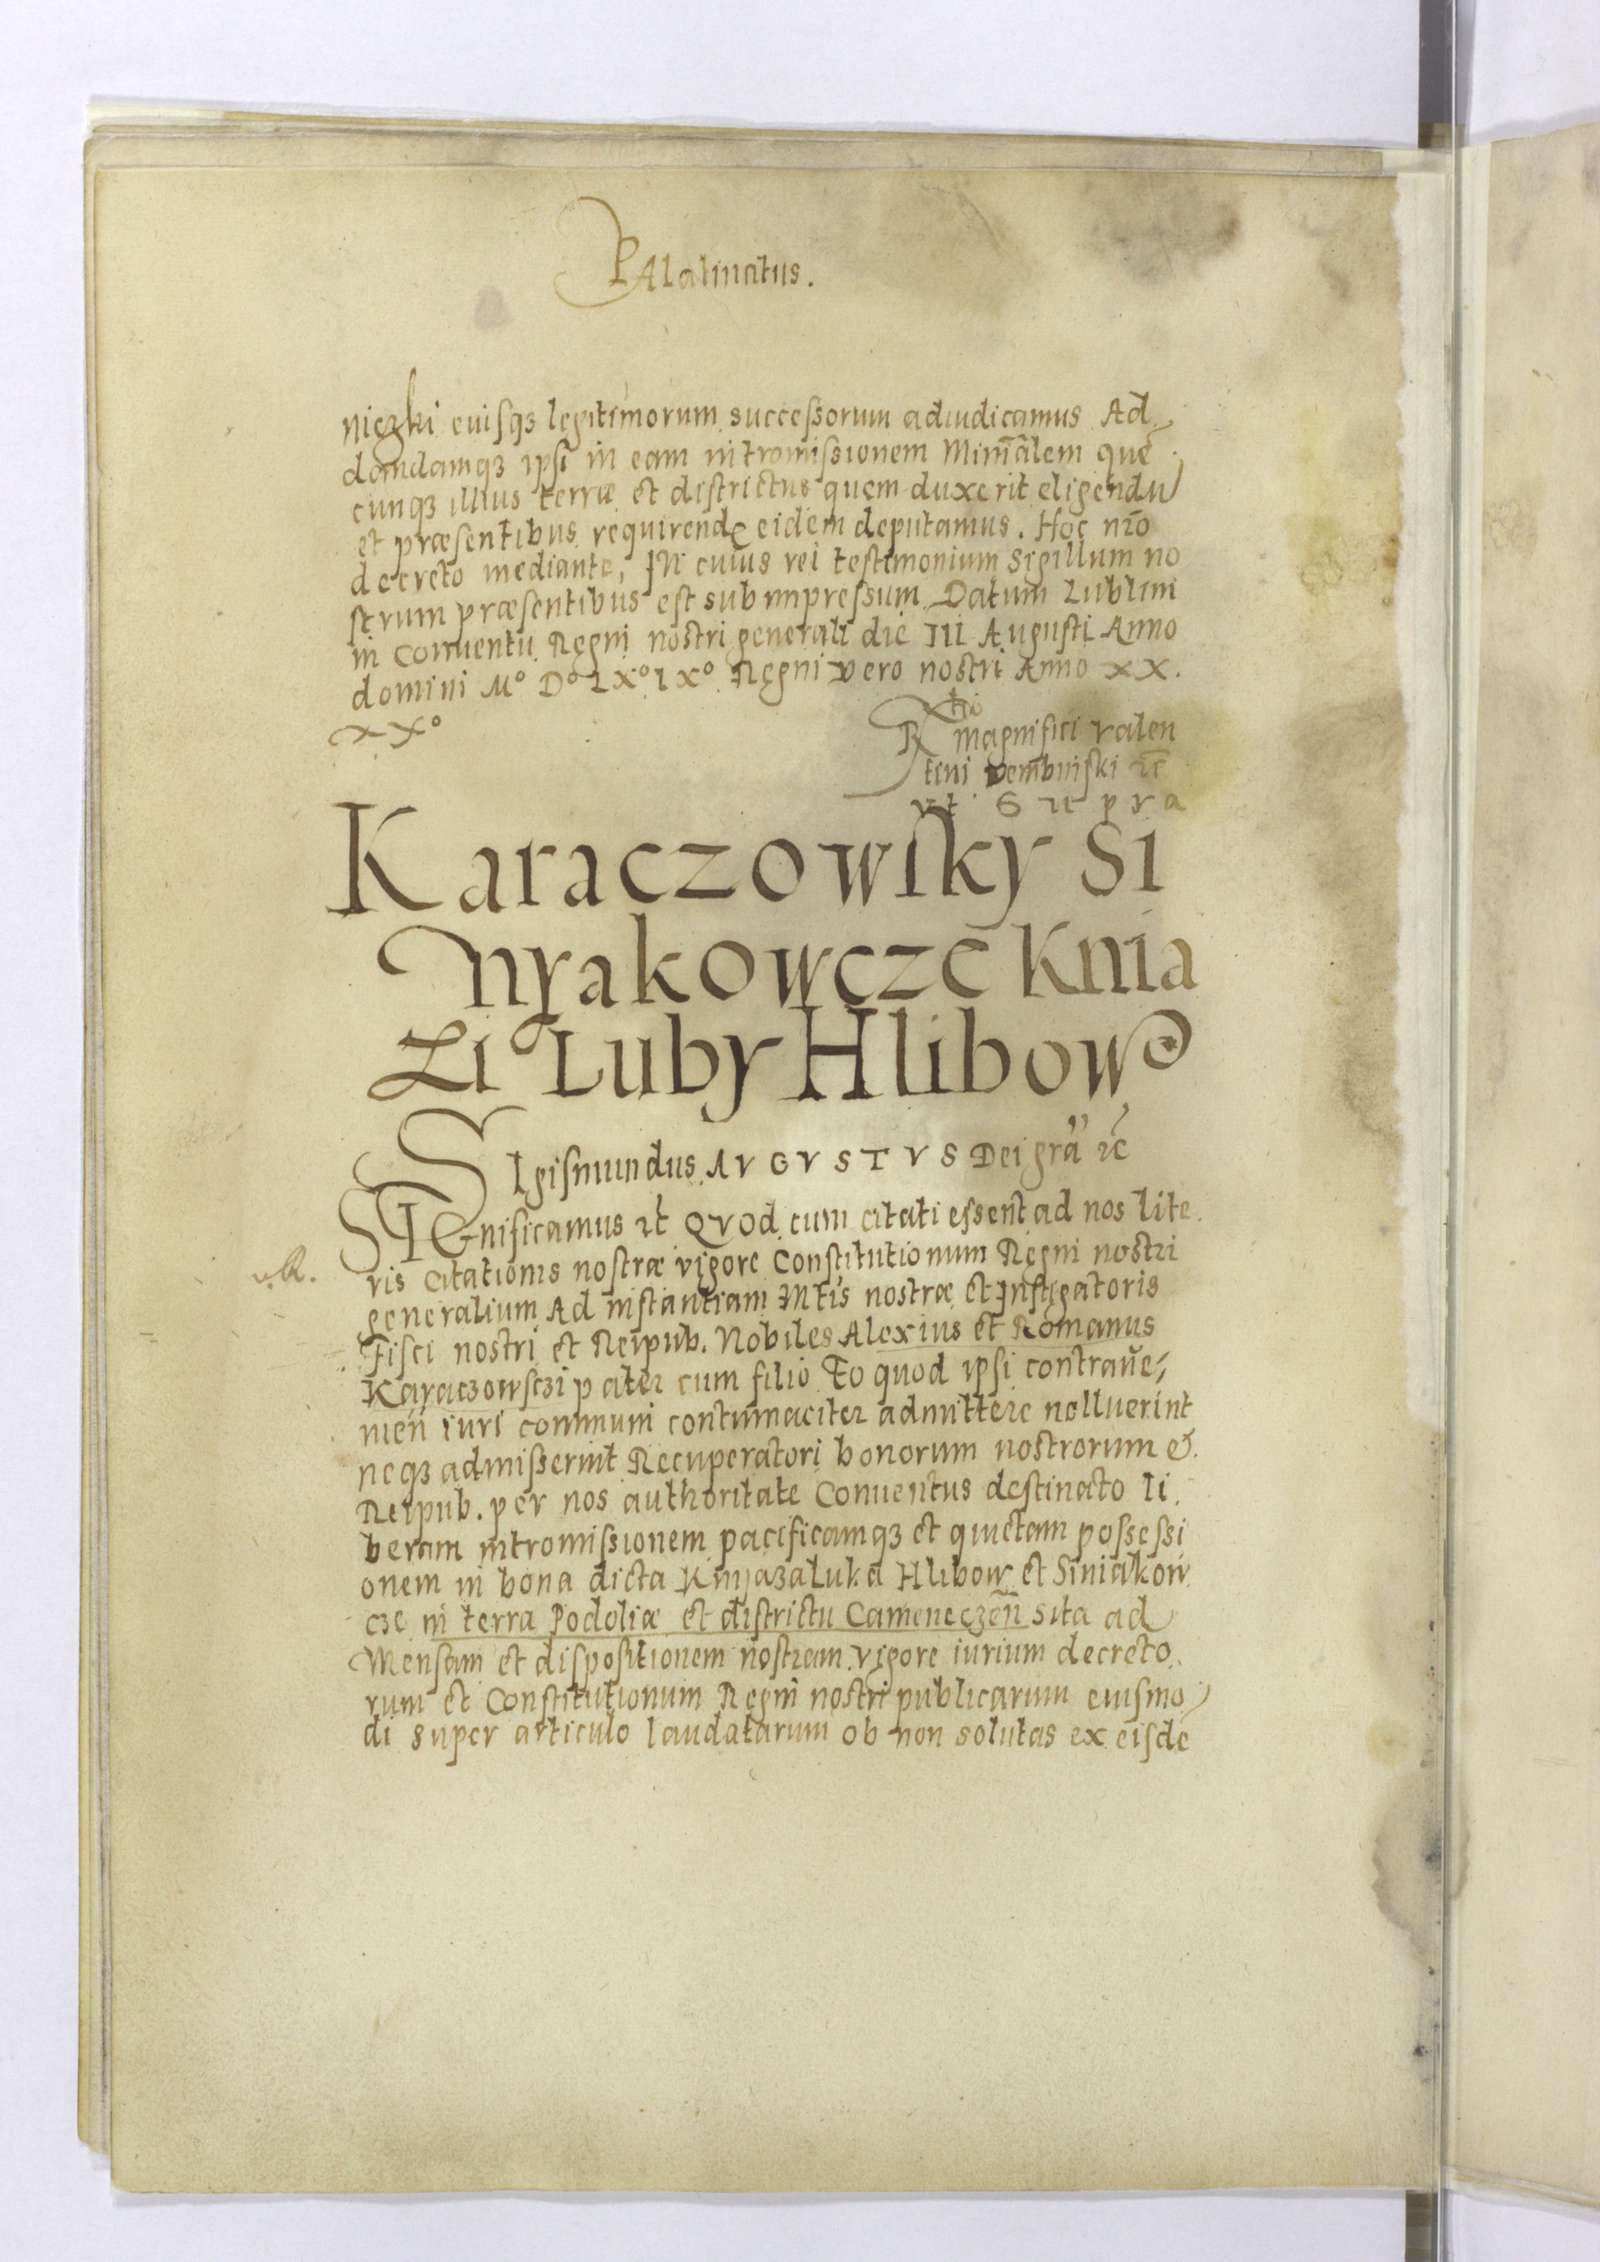 PAlatinatus.
niczki euisqʒ legitimorum successorum adiudicamus Ad
dandamqʒ ipsi in eam intromissionem Minrālem quē
cunqʒ illius terræ et districtus quem duxerit eligendū
et præsentibus requirendę eidem deputamus. Hoc nrō
decreto mediante, IN cuius rei testimonium Sigillum no
strum præsentibus est subimpressum Datum Lublini
in Conuentu Regni nostri generali die III Augusti Anno
domini Mº Dº LXº IXº Regni vero nostri Anno XX.
XXº
Rtio
magnifici valen
tini Dembinski ēt
vt Supra
Karaczowsky Si
nyakowcze Knia
Zi Luby Hlibow
SIgismundus AVGVSTVS Dei gra ēt
SIGnificamus ēt QVOd cum citati essent ad nos lite
ris citationis nostræ vigore Constitutionum Regni nostri
generalium Ad instantiam Mtis nostræ et Instigatoris
Fisci nostri et Reipub. Nobiles Alexius et Romanus
Karaczowsczi pater cum filio Eo quod ipsi contraue-
nien iuri communi contumaciter admittere nolluerint
neqʒ admisserint Recuperatori bonorum nostrorum &
Reipub. per nos authoritate Conuentus destinato li
beram intromissionem pacificamqʒ et quietam possessi
onem in bona dicta Knyazaluka Hlibow et Siniakow
cze in terra Podoliæ et districtu Cameneczeñ sita ad
Mensam et dispositionem nostram vigore iurium decreto
rum et Constitutionum Regni nostri publicarum euismo
di super articulo laudatarum ob non solutas ex eisdē